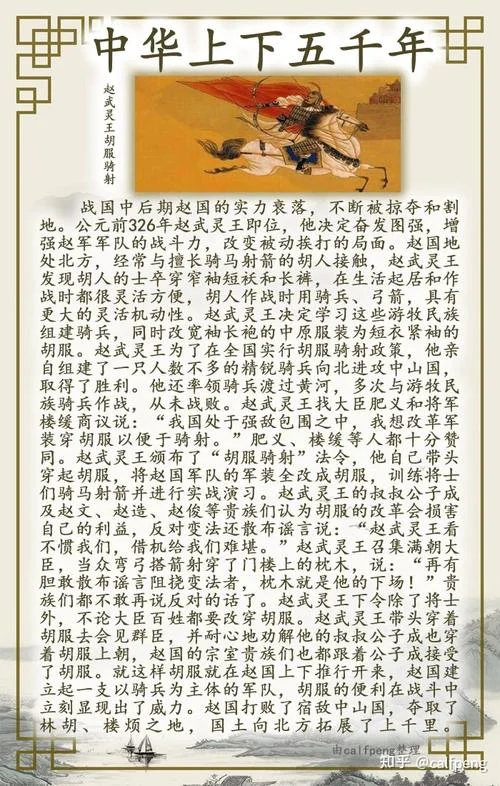 中华上下五千年
赵武灵王胡服骑射
战国中后期赵国的实力衰落，不断被掠夺和割
地。公元前326年赵武灵王即位，他决定奋发图强，增
强赵军军队的战斗力，改变被动挨打的局面。赵国地
处北方，经常与擅长骑马射箭的胡人接触，赵武灵王
发现胡人的士卒穿窄袖短袄和长裤，在生活起居和作
战时都很灵活方便，胡人作战时用骑兵、弓箭，具有
更大的灵活机动性。赵武灵王决定学习这些游牧民族
组建骑兵，同时改宽袖长袍的中原服装为短衣紧袖的
胡服。赵武灵王为了在全国实行胡服骑射政策，他亲
自组建了一只人数不多的精锐骑兵向北进攻中山国，
取得了胜利。他还率领骑兵渡过黄河，多次与游牧民
族骑兵作战，从未战败。赵武灵王找大臣肥义和将军
楼缓商议说：“我国处于强敌包围之中，我想改革军
装穿胡服以便于骑射。”肥义、楼缓等人都十分赞
同。赵武灵王颁布了“胡服骑射”法令，他自己带头
穿起胡服，将赵国军队的军装全改成胡服，训练将士
们骑马射箭并进行实战演习。赵武灵王的叔叔公子成
及赵文、赵造、赵俊等贵族们认为胡服的改革会损害
自己的利益，反对变法还散布谣言说：“赵武灵王看
不惯我们，借机给我们难堪。”赵武灵王召集满朝大
臣，当众弯弓搭箭射穿了门楼上的枕木，说：“再有
胆敢散布谣言阻挠变法者，枕木就是他的下场！”贵
族们都不敢再说反对的话了。赵武灵王下令除了将士
外，不论大臣百姓都要改穿胡服。赵武灵王带头穿着
胡服去会见群臣，并耐心地劝解他的叔叔公子成也穿
着胡服上朝，赵国的宗室贵族们也都跟着公子成接受
了胡服。就这样胡服就在赵国上下推行开来，赵国建
立起一支以骑兵为主体的军队，胡服的便利在战斗中
立刻显现出了威力。赵国打败了宿敌中山国，夺取了
林胡、楼烦之地，国土向北方拓展了上千里。
由calfpeng整理
知乎 @calfpeng